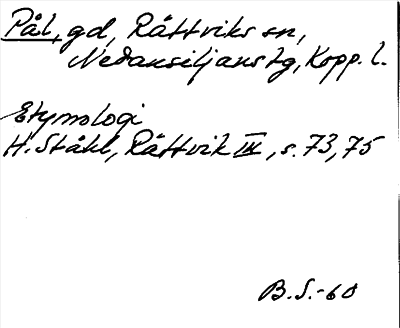 Pål, gd, Rättviks sn,
Nedansiljans tg, Kopp. l.
Etymologi
H. Ståhl, Rättvik III, s. 73, 75
B.S.-60